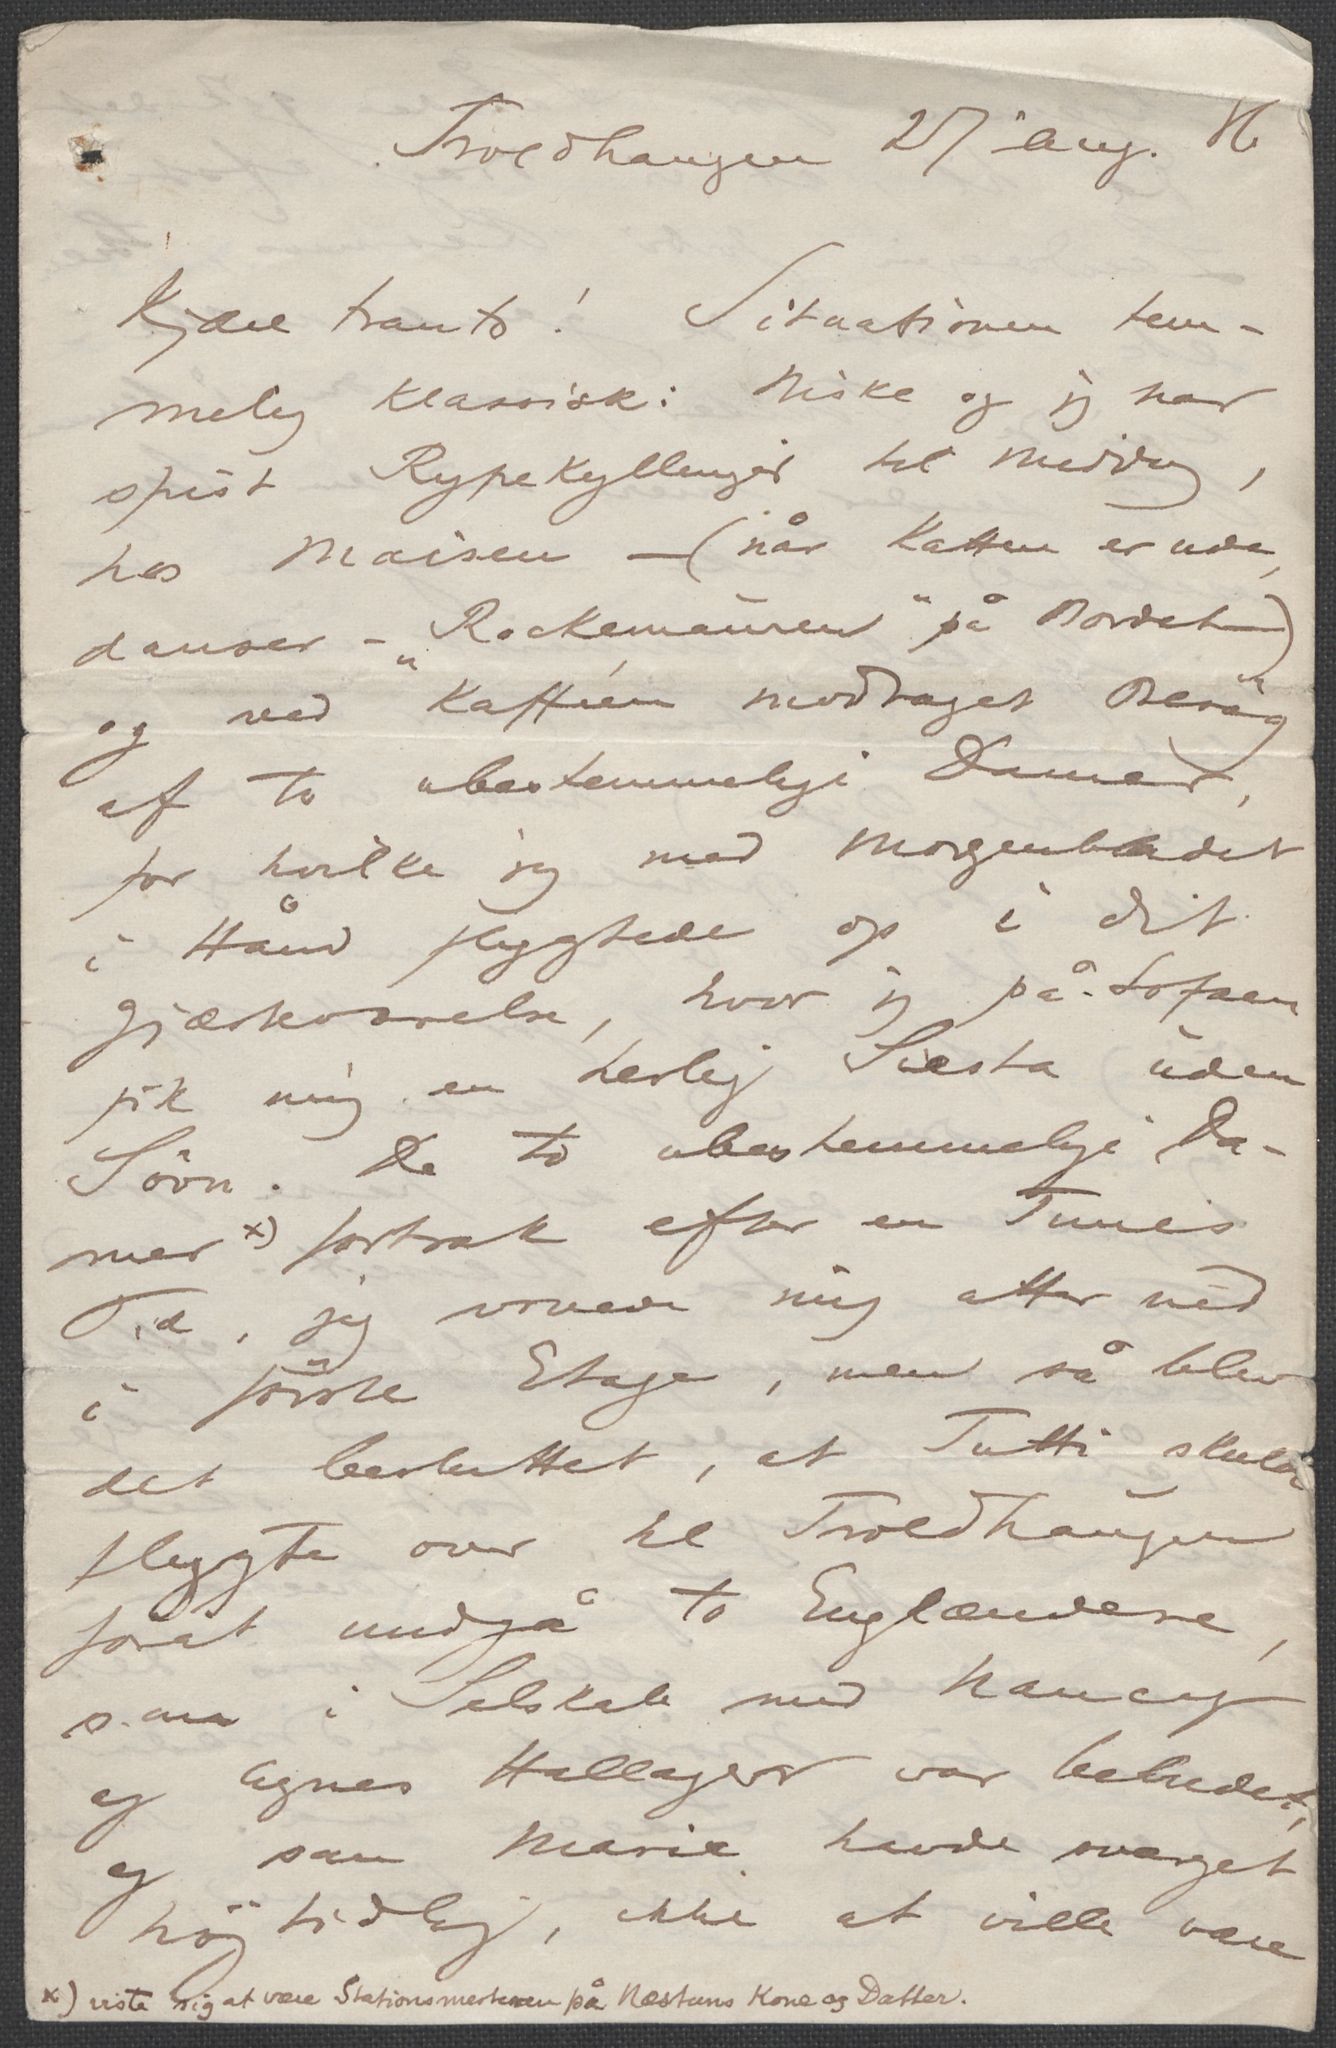 Troldhaugen 27 Aug. 86
Kjære Frants! Situationen tem-
melig klassisk: Niske og jeg har
spist Rypekyllinger til Middag,
hos Maisen — (når Katten er ude,
danser – „Rockemausen" på Bordet—)
og ved Kaffeen modtaget Besøg
af to ubestemmelige Damer,
for hvilke jeg med Morgenbladet
i Hånd flygtede op i dit
Gjæsteværelse, hvor jeg på Sofaen
fik mig en herlig Siesta uden
Søvn. De to ubestemmelige Da-
mer x) fortrak efter en Times
Tid, jeg vovede mig atter ned
i første Etage, men så blev
det besluttet, at Tutti skulde
flygte over til Troldhaugen
forat undgå to Englændere,
som i Selskab med Nancy
og Agnes Hallager var bebudet,
og som Marie havde svoret
højtidelig, ikke at ville være
x) viste sig at være Stationsmesteren på Nestuns Kone og Datter.